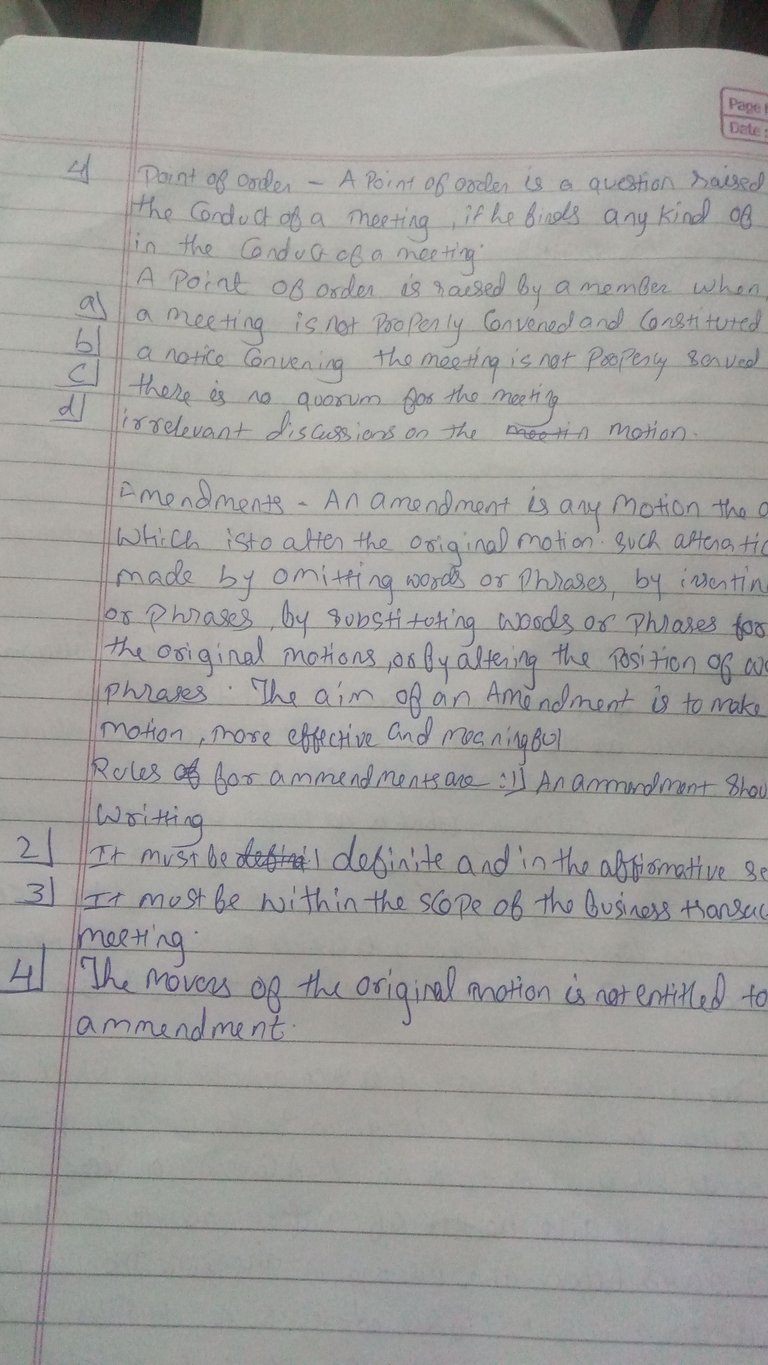 Page
Date :
4] Point of order - A Point of order is a question raised
the Conduct of a meeting, if he finds any kind of
in the Conduct of a meeting.
A Point of order is raised by a member when
a] a meeting is not Properly Convened and Constituted
b] a notice Convening the meeting is not Properly Served
c] there is no quorum for the meeting
d] irrelevant discussions on the motion.
Amendments - An amendment is any motion the
which is to alter the original motion. Such
made by omitting words or Phrases, by
or Phrases, by Substituting words or Phrases for
the original motions, or By altering the Position of
phrases. The aim of an Amendment is to make
motion, more effective and meaningful
Rules for ammendments are :1] An ammendment
Writting
2] It must be definite and in the affirmative
3] It must be within the scope of the Business
meeting.
4] The movers of the original motion is not entitled to
ammendment.